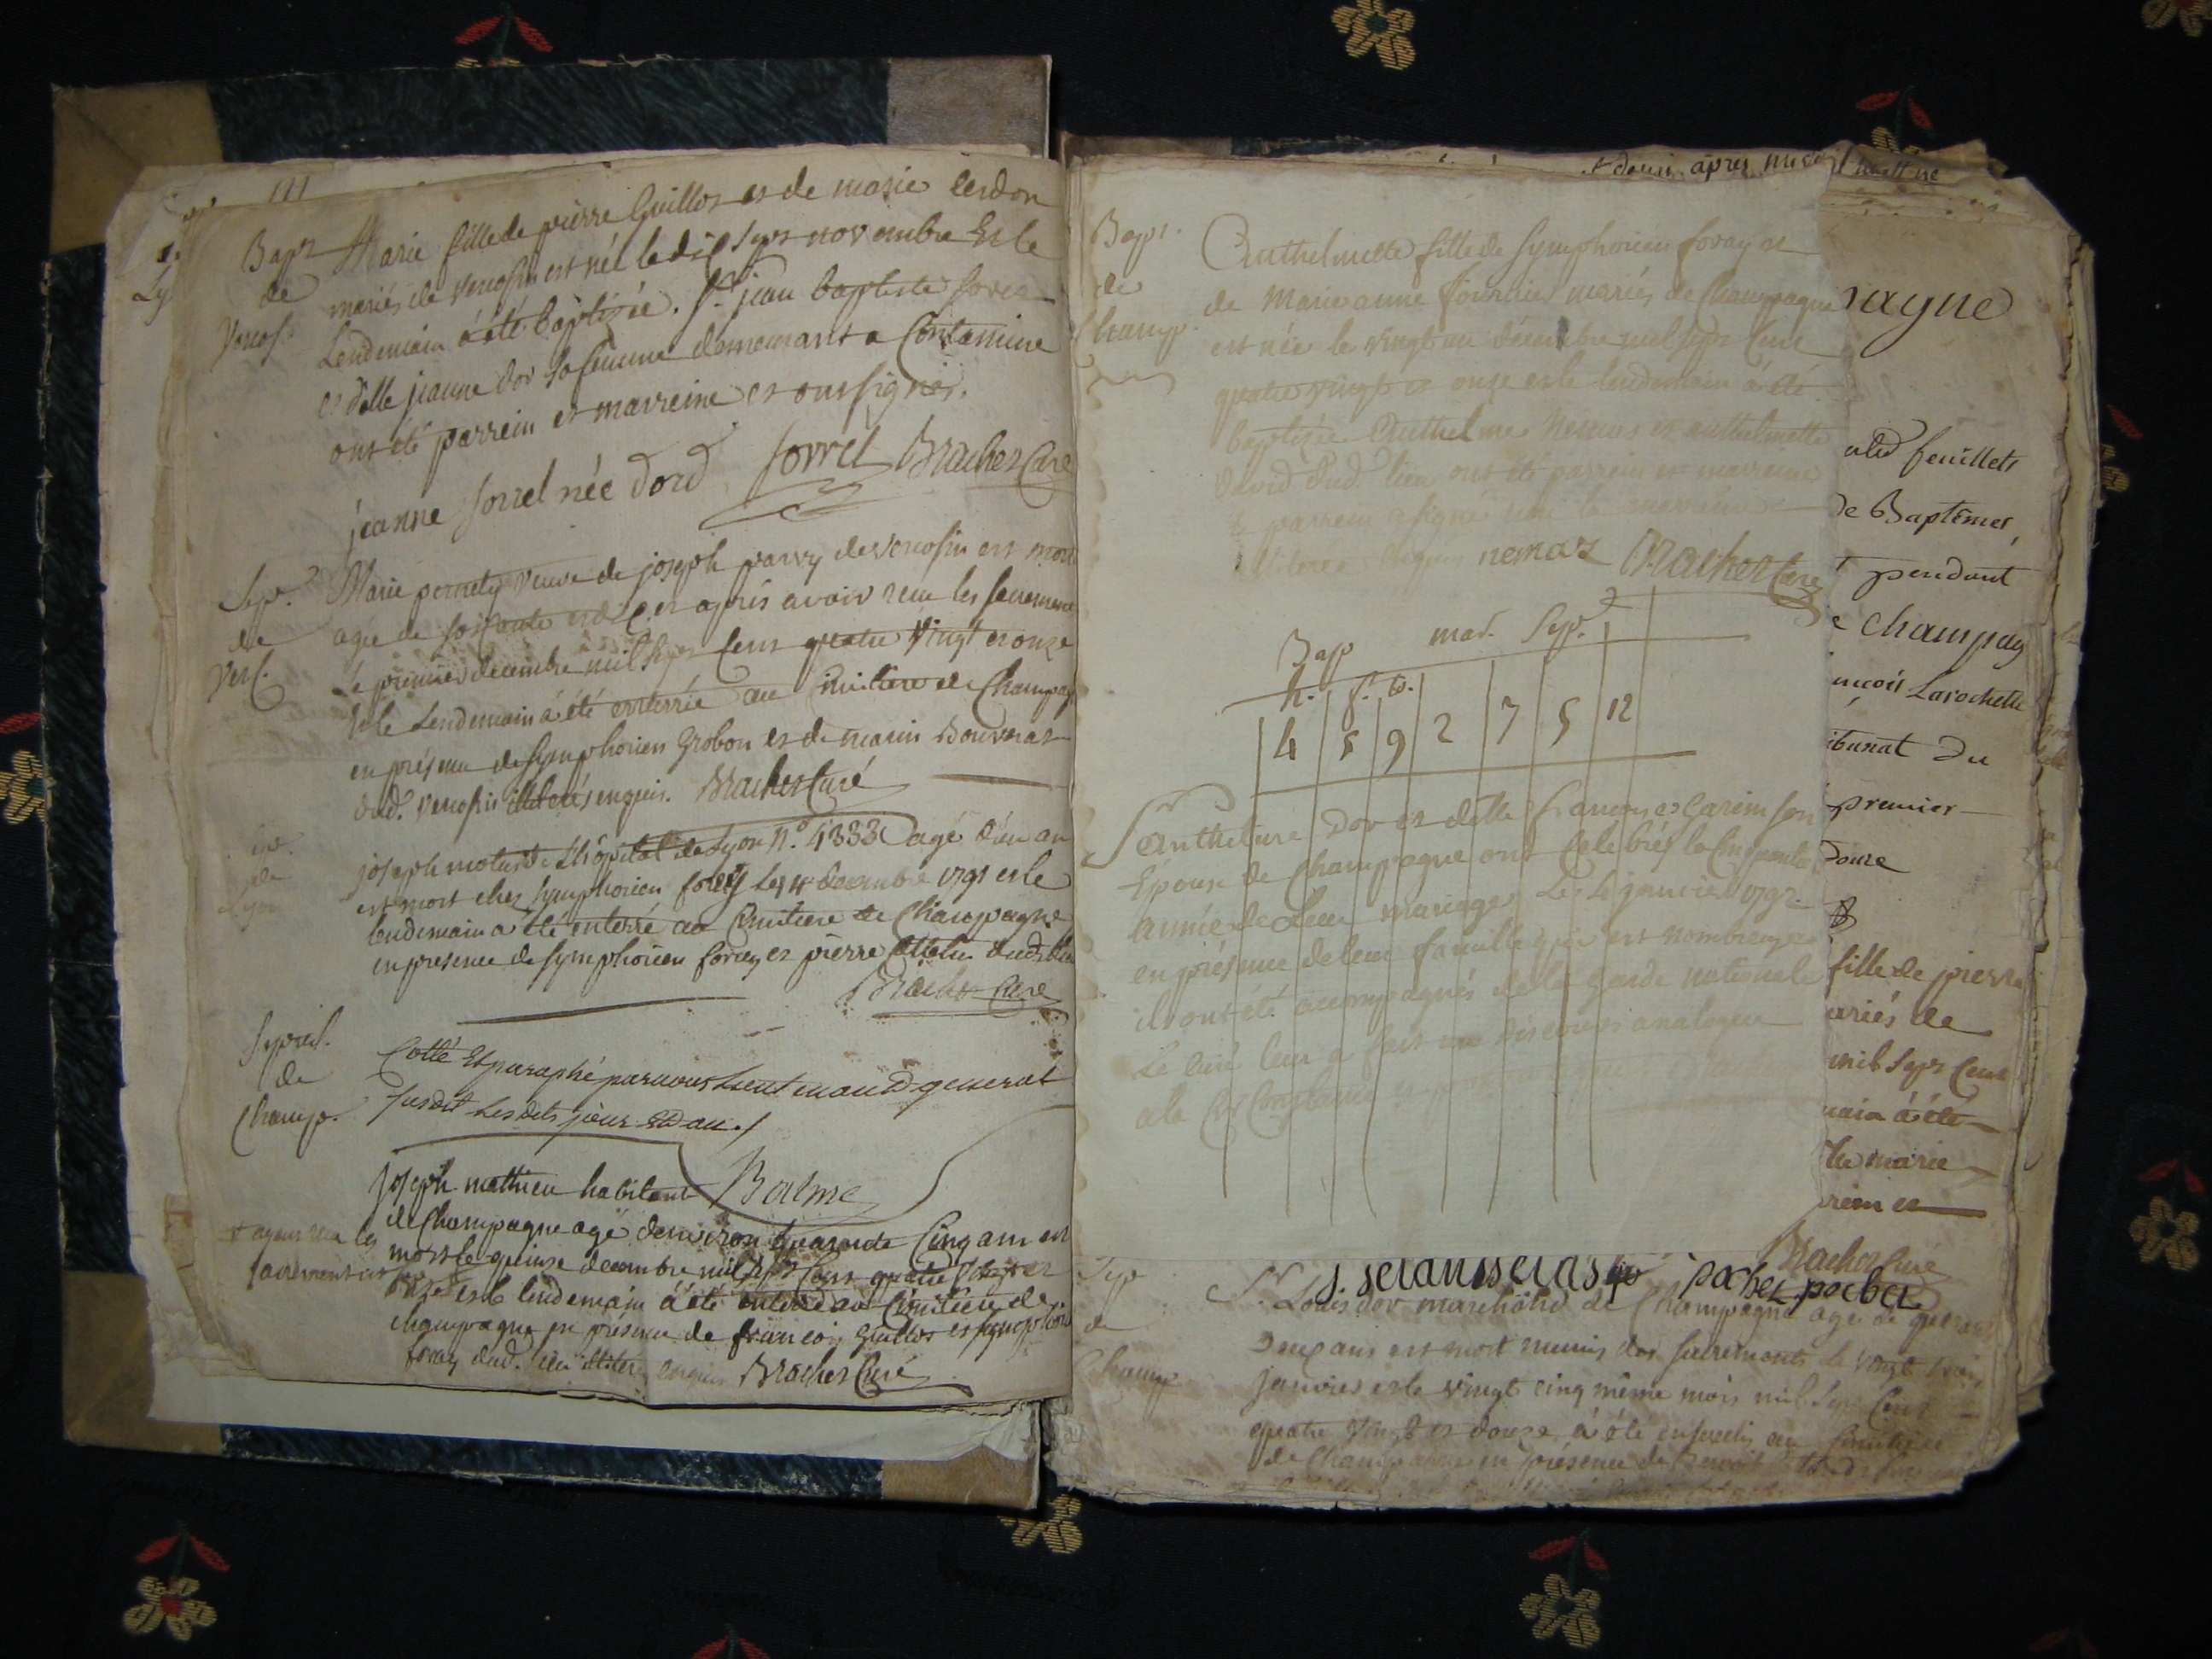 Bapt Marie fille de pierre Guillot et de marie cerdon
de mariés de Vencosin est née le dix sept novembre Et le
Vencos. Lendemain à été baptisée. Sr. jean baptiste Sorrel
et dlle jeanne dor sa femme demeurant a Contamine
ont été parrein et marreine et ont signés.
jeanne sorrel née dord Sorrel Brachet Curé
Sep. Marie pernety veuve de joseph parvy de vencosin est morte
de agée de soixante et dix et après avoir reçu les sacrements
Venc. Le premier decembre mil sept Cent quatre Vingt et onze
Et le Lendemain à été enterrée au Cimitiere de Champag
en présence de Symphorien Grobon et de marin Bouveras
dud. Vencosin illiterés enquis. Brachet Curé
Sep. joseph de L'hôpital de Lyon N.º 4333 agé d'un an
de est mort chez Symphorien forey Les 4 decembre 1791 et le
Lyon lendemain à été enterré au Cimitiere de Champagne
en présence de Symphorien forey et pierre dud. lieu
Brachet Curé
Sepul. Cotté Et paraphé par nous Lieutenand general
de susdit Les dits jour Et an./
Champ. Balme
joseph mathieu habitant
de Champagne agé denviron quarente Cinq ans est
+ ayant reçu les mort le quinze decembre mil sept Cent quatre Vingt et
sacrements onze et le lendemain à été enterré au Cimitiere de
champagne en présence de françois Guillot et Symphorien
forey dud. lieu illiteres enquis Brachet Curé
après midi
Bapt. Anthelmette fille de Symphorien forey et
de de Marie anne fournier mariés de Champagne
Champ. est née le vingt un décembre mil sept Cent
quatre vingt et onze et le lendemain à été
baptisée Anthelme Nemoz et anthelmette
david dud. lieu ont été parrein et marreine
le parrein a signé non la marreine
illiterée enquis nemoz Brachet Curé
Bap mar. Sep.
h. f. t.
4 5 9 2 7 5 12
Sr Anthelme Dor et dlle françoise Garin son
Epouse de Champagne ont Celebrés la Cinquante
année de Leur mariage Le janvier 1792
en présence de leur famille qui est nombreuse
ils ont été accompagnés de la garde nationale
Le Curé leur a fait un discours analogue
a la Circonstance
pagne
feuillets
de Baptêmes,
pendant
Champag
ançois Larochette
ibunat Du
premier
Douze
fille de pierre
ariés de
mil sept Cent
main à été
marie
rein et
Brachet Curé
pochet pochet
Sep Sr. Louis dor marchand de Champagne agé de quarante
de Deux ans est mort munis des sacrements le vingt trois
Champ janvier et le vingt cinq même mois mil sept Cent
quatre Vingt et douze à été enseveli au Cimitiere
de Champagne en présence de